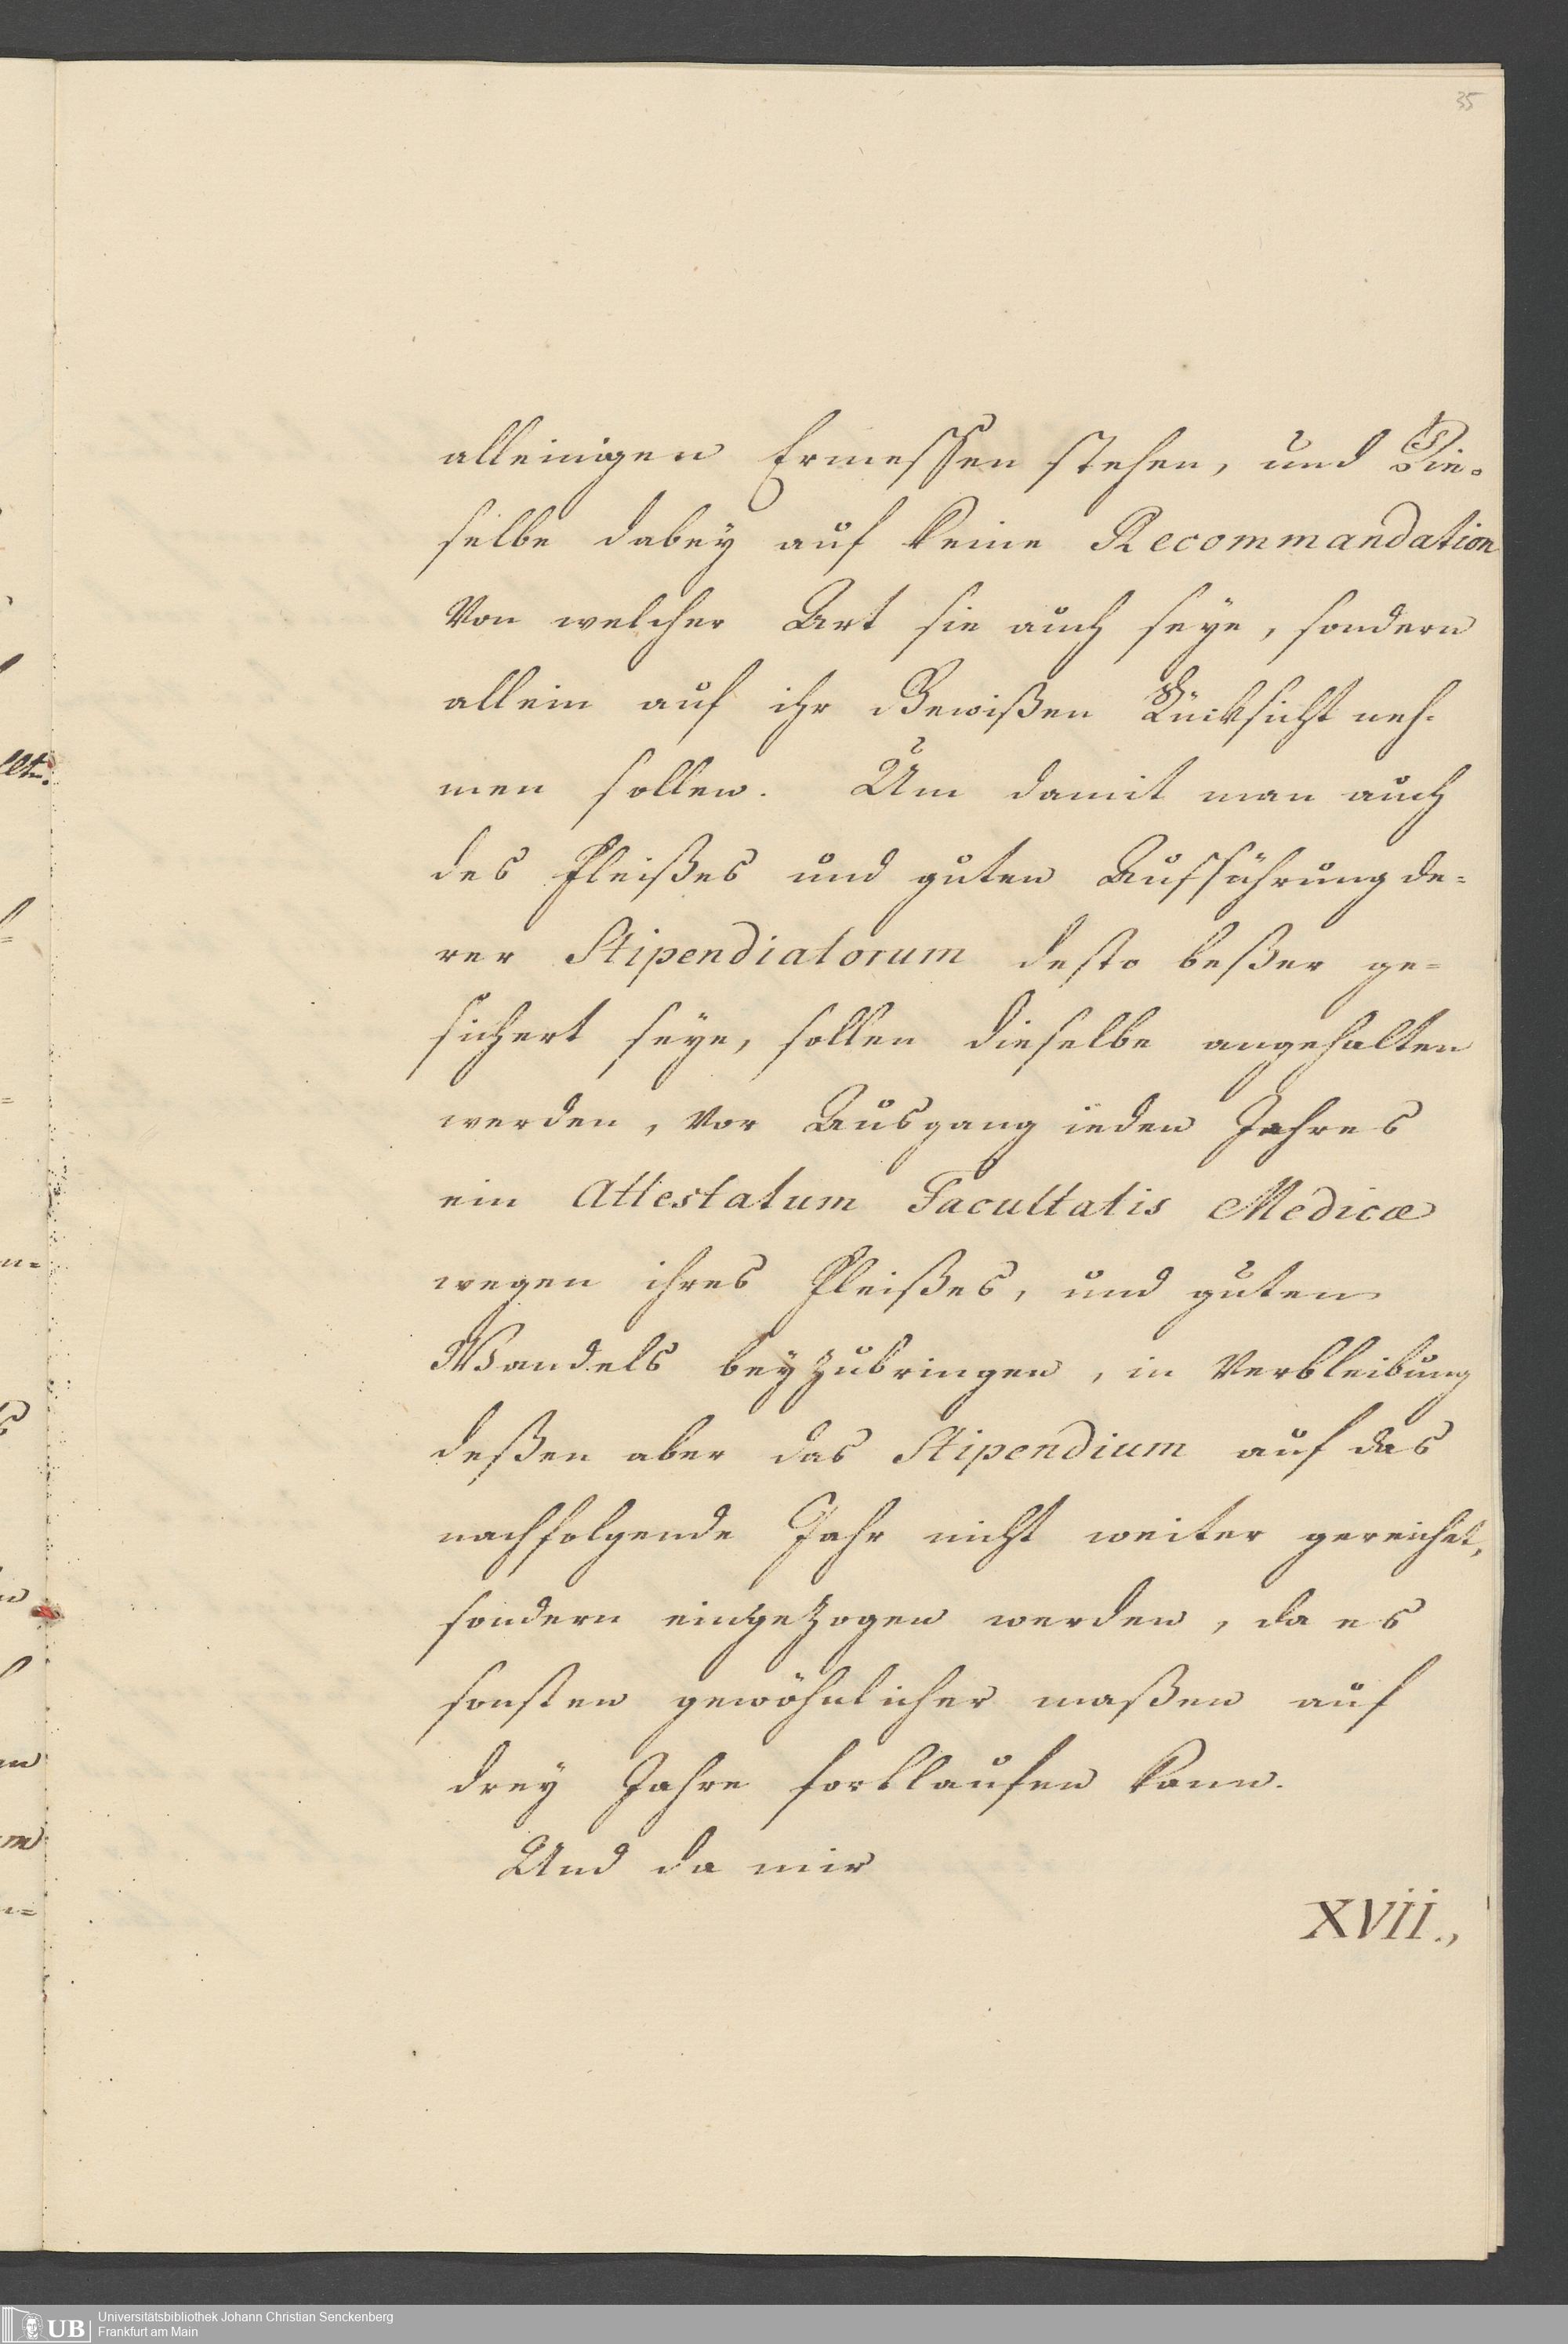 35
alleinigen Ermessen stehen, und Die-
selbe dabey auf keine Recommandation
von welcher Art sie auch seye, sondern
allein auf ihr Gewißen Rücksicht neh-
men sollen. Um damit man auch
des Fleißes und guten Aufführung de=
rer Stipendiatorum desto beßer ge=
sichert seye, sollen dieselbe angehalten
werden, vor Ausgang ieden Jahres
ein Attestatum Facultatis Medicæ
wegen ihres Fleißes, und guten
Wandels beyzubringen, in Verbleibung
deßen aber das Stipendium auf das
nachfolgende Jahr nicht weiter gereichet,
sondern eingezogen werden, da es
sonsten gewöhnlicher maßen auf
drey Jahre fortlaufen kann.
Und da mir
XVII.,
UB Universitätsbibliothek Johann Christian Senckenberg
Frankfurt am Main